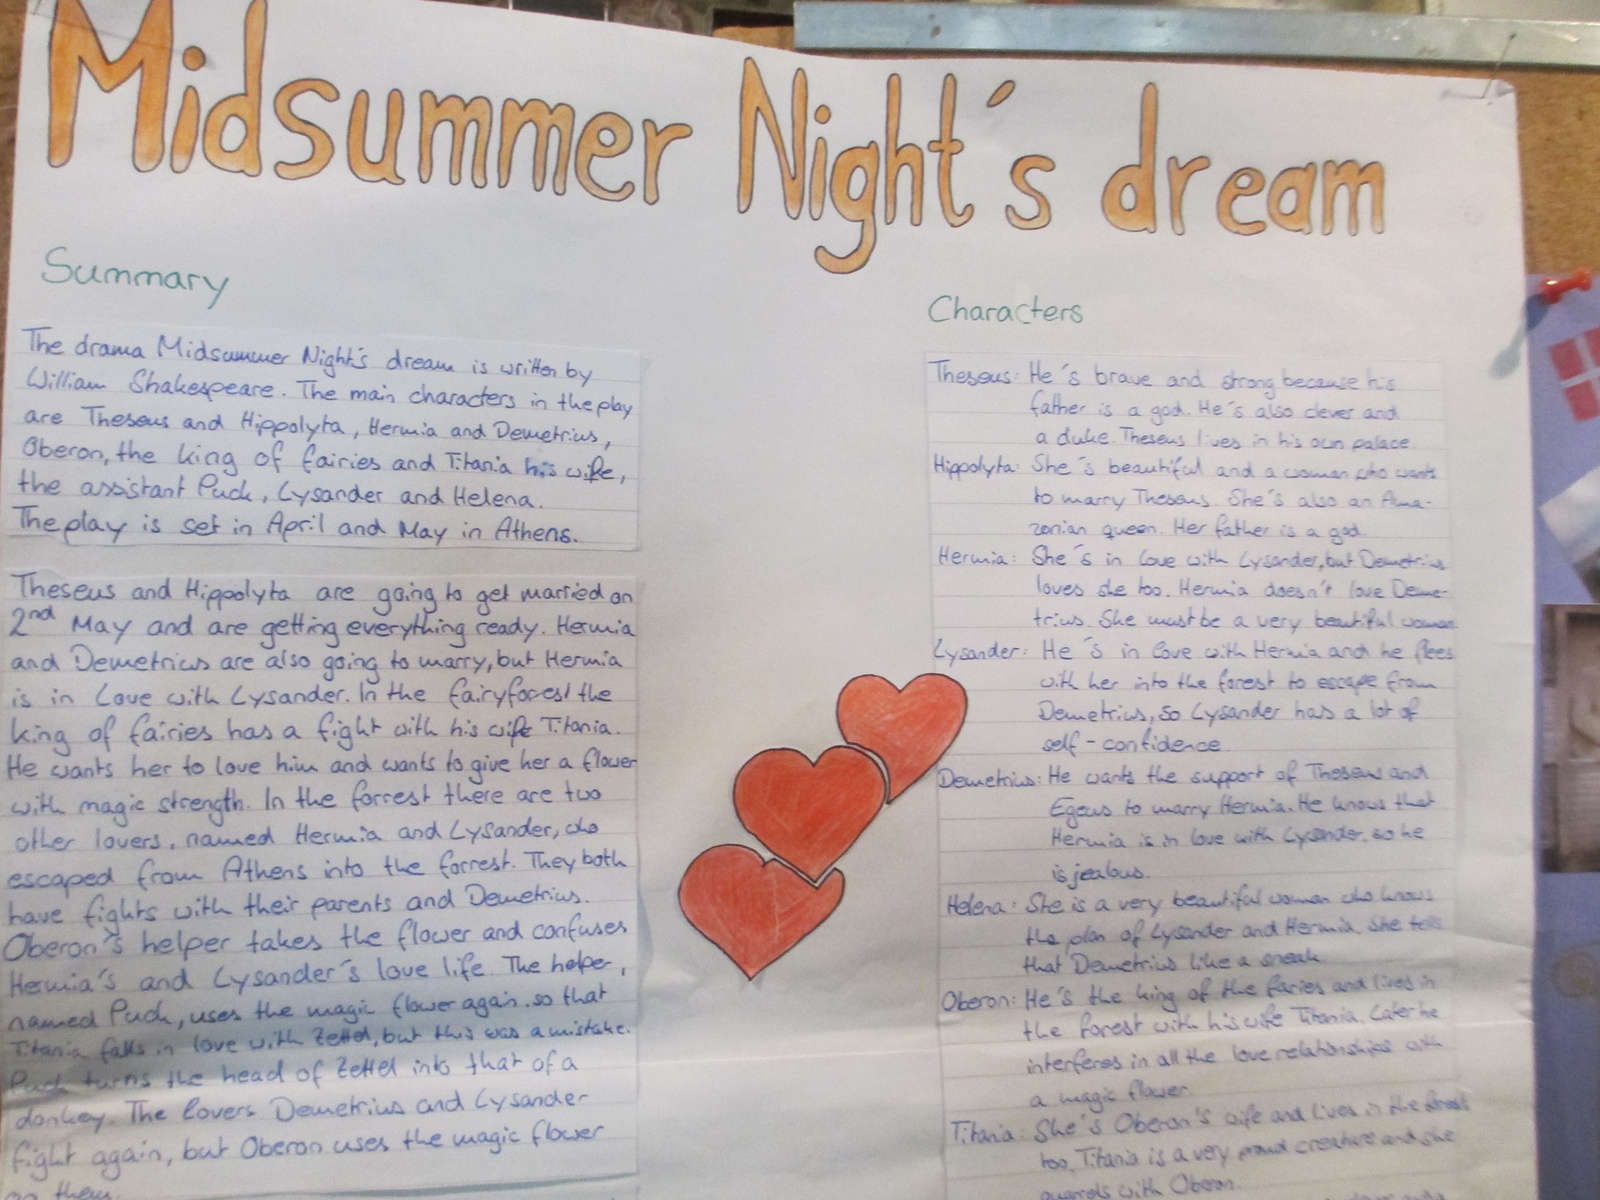 Midsummer Night´s dream
Summary
The drama Midsummer Night's dream is written by
William Shakespeare. The main characters in the play
are Theseus and Hippolyta, Hermia and Demetrius,
Oberon, the king of fairies and Titania his wife,
the assistant Puck, Lysander and Helena.
The play is set in April and May in Athens.
Theseus and Hippolyta are going to get married on
2nd May and are getting everything ready. Hermia
and Demetrius are also going to marry, but Hermia
is in love with Lysander. In the fairyforest the
king of fairies has a fight with his wife Titania.
He wants her to love him and wants to give her a flower
with magic strength. In the forrest there are two
other lovers, named Hermia and Lysander, who
escaped from Athens into the forrest. They both
have fights with their parents and Demetrius.
Oberon's helper takes the flower and confuses
Hermia's and Lysander´s love life. The helper,
named Puck, uses the magic flower again. so that
Titania falls in love with Zettel, but this was a mistake.
Puck turns the head of Zettel into that of a
donkey. The lovers Demetrius and Lysander
fight again, but Oberon uses the magic flower
on them.
Characters
Theseus: He´s brave and strong because his
father is a god. He's also clever and
a duke. Theseus lives in his own palace
Hippolyta: She´s beautiful and a woman who wants
to marry Theseus. She´s also an Ama-
zonian queen. Her father is a god.
Hermia: She´s in love with Lysander, but Demetrius
loves she too. Hermia doesn't love Deme-
trius. She must be a very beautiful woman
Lysander: He´s in love with Hermia and he flees
with her into the forest to escape from
Demetrius, so Lysander has a lot of
self-confidence.
Demetrius: He wants the support of Theseus and
Egeus to marry Hermia. He knows that
Hermia is in love with Lysander. so he
is jealous.
Helena: She is a very beautiful woman who knows
the plan of Lysander and Hermia. She tells
that Demetrius like a sneak
Oberon: He´s the king of the faries and lives in
the forest with his wife Titania. Later he
interferes in all the love relationships with
a magic flower.
Titania: She´s Oberon´s wife and lives in the forest
too. Titania is a very proud creature and she
quarrels with Oberon.